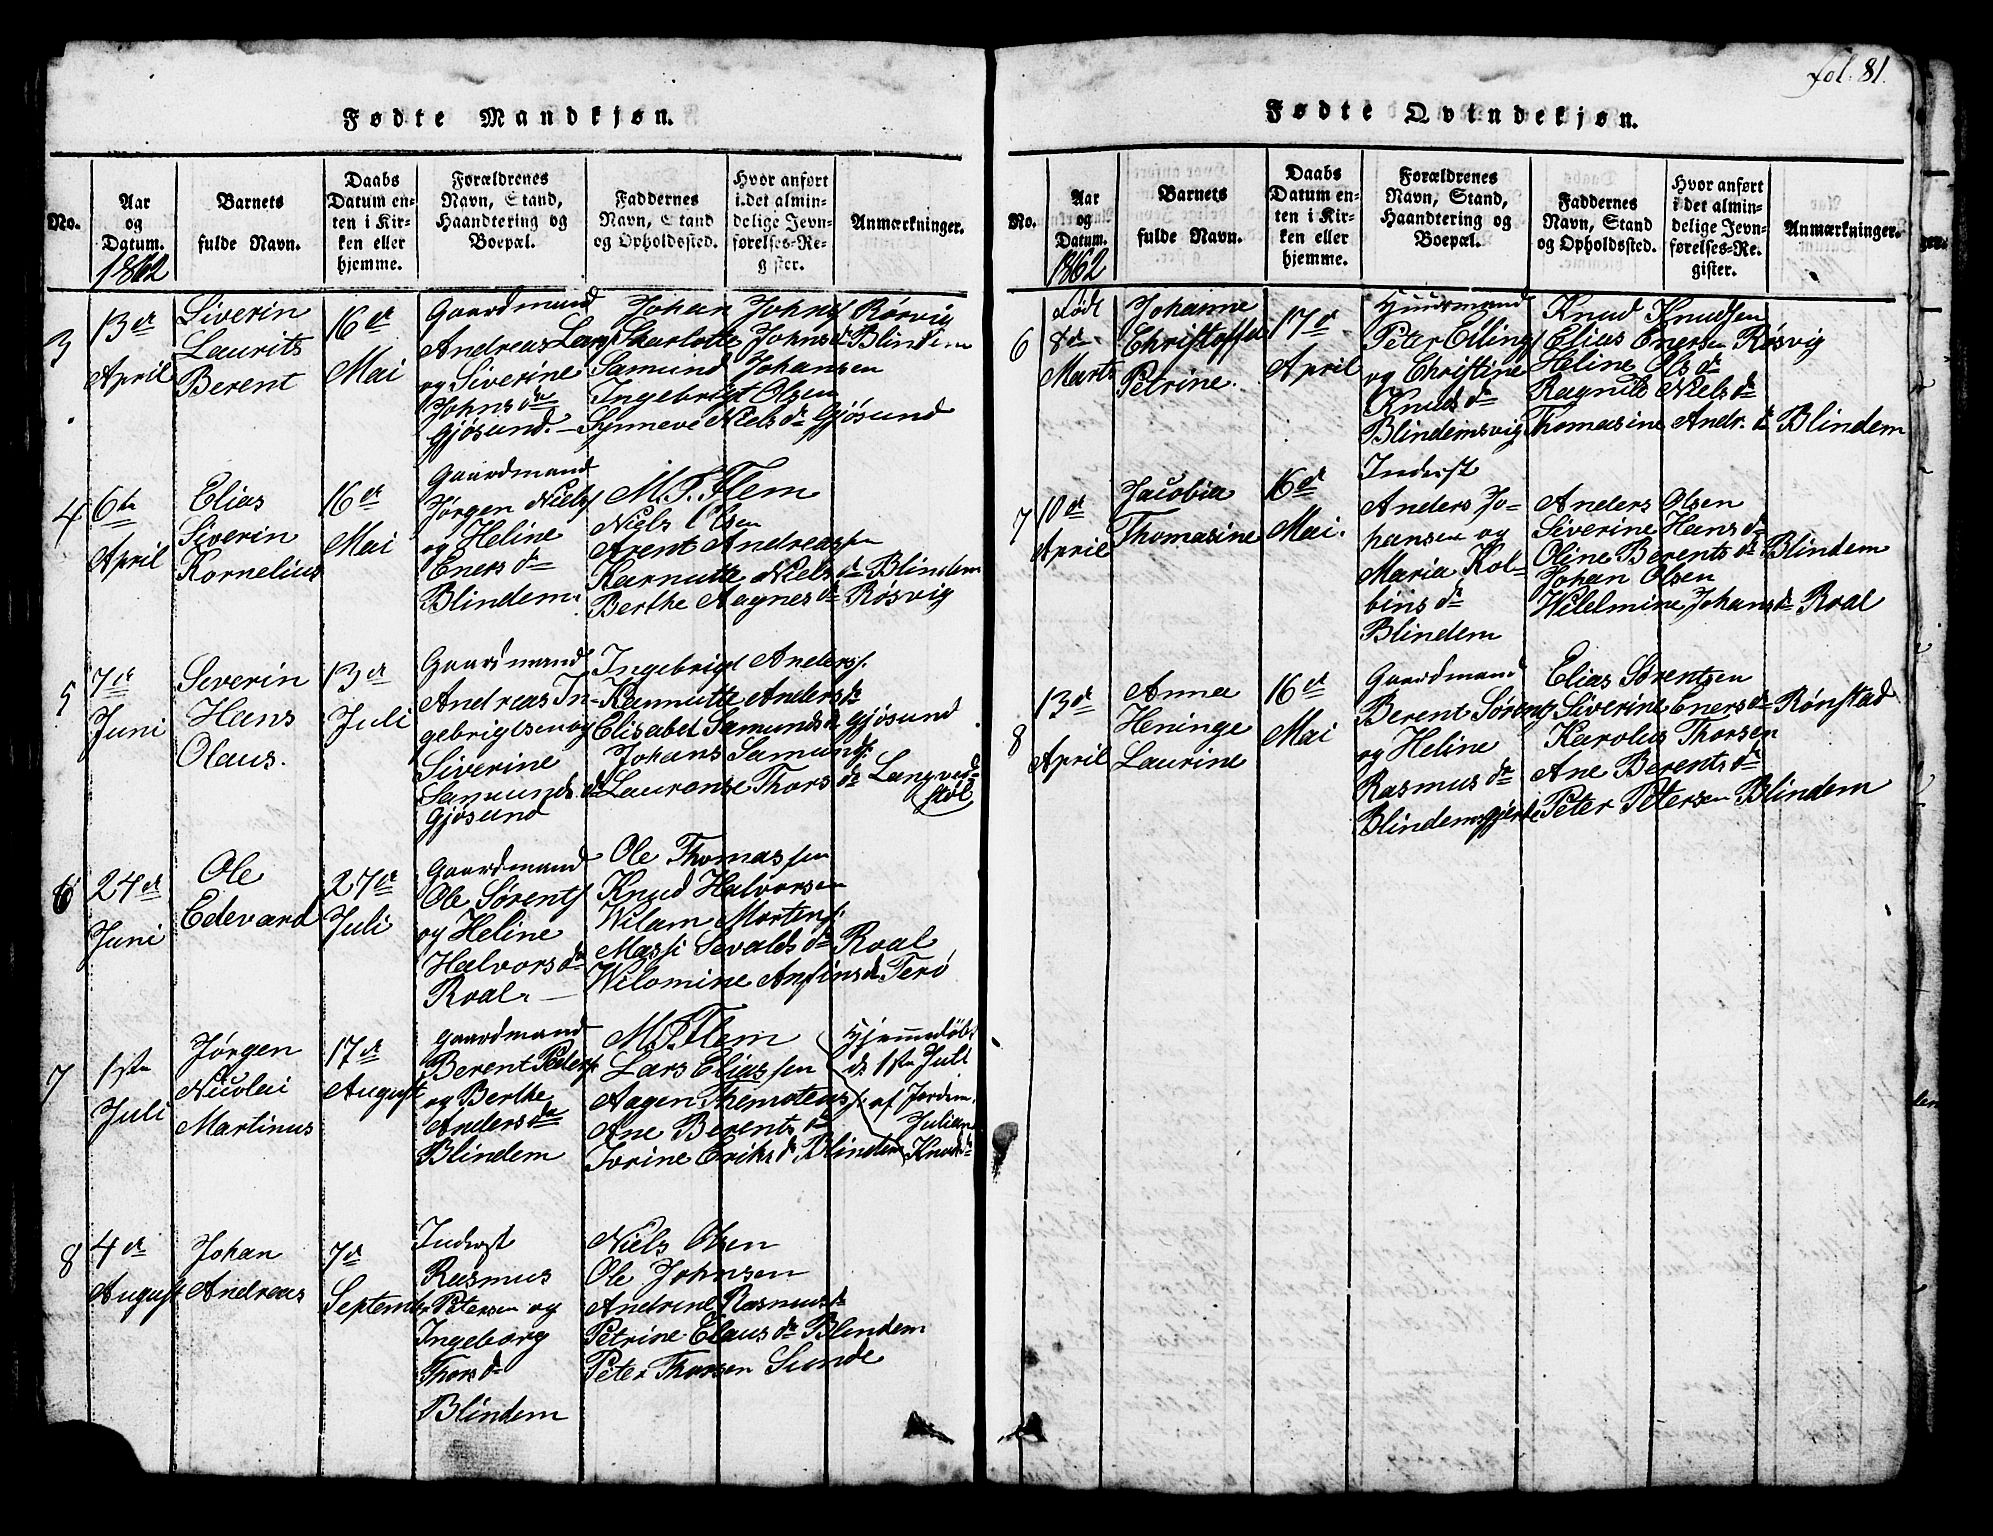 fol. 81.
Fødte Mandkjøn.
No.
Aar og Datum.
1862
Barnets fulde Navn.
Daabs Datum enten i Kirken eller hjemme.
Forældrenes Navn, Stand, Haandtering og Boepæl.
Faddernes Navn, Stand og Opholdssted.
Hvor anført i det almindelige Jevnførelses-Register.
Anmærkninger.
3
13de
April
Siverin
Laurits
Berent
16de
Mai
Gaardmand
Andreas Lars
og Siverine
Johnsdr
Gjøsund.
Johan Johns Rørvig
Skarlotte Johnsdr Blindem
Samund Johansen
Ingebrigt Olsen
Synneve Nielsdr Gjøsund
4
6te
April
Elias
Siverin
Kornelius
16de
Mai
Gaardmand
Jørgen Niels
og Heline
Enersdr
Blindem.
M. P. Flem
Niels Olsen
Arent Andreassen
Karnutte Nielsdr Blindem
Berthe Aagnesdr Røsvig
5
7de
Juni
Severin
Hans
Olaus.
13de
Juli
Gaardmand
Andreas In-
gebrigtsen og
Siverine
Samundsdr
Gjøsund
Ingebrigt Anders.
Rannutte Andersdr
Elisabet Samundsdr Gjøsund
Johans Samunds.
Lauronse Thorsdr Langved
støl
6
24de
Juni
Ole
Edevard
27de
Juli
Gaardmand
Ole Sørents
og Heline
Halvorsdr
Roal.
Ole Thomassen
Knud Halvorsen
Wilam Mortens.
Massi Sevaldsdr Roal
Wilomine Anfinsdr Terø
7
1ste
Juli
Jørgen
Nicolai
Martinus
17de
August
Gaardmand
Berent Peders.
og Berthe
Andersdr
Blindem
M. P. Flem
Lars Eliassen
Aagen Themotens.
Ane Berentsdr
Jvrine Eriksdr Blindem
Hjemmedøbt
d. 1ste Juli
af Jordm.
Juliane
Knudsdr
8
4de
August
Johan
Andreas
7de
September
Inderst
Rasmus
Petersen og
Ingeborg
Thorsdr
Blindem
Niels Olsen
Ole Johnsen
Andrine Rasmusdr
Petrine Elausdr Blindem
Peter Thorsen Sunde
Fødte Qvindekjøn.
No.
Aar og Datum.
1862
Barnets fulde Navn.
Daabs Datum enten i Kirken eller hjemme.
Forældrenes Navn, Stand, Haandtering og Boepæl.
Faddernes Navn, Stand og Opholdssted.
Hvor anført i det almindelige Jevnførelses-Register.
Anmærkninger.
6
Født
8de
Marts
Johanne
Christoffa
Petrine.
17de
April
Huusmand
Peter Ellings
og Christine
Knudsdr
Blindemsvig
Knud Knudsen
Elias Enersen Røsvig
Heline Olsdr
Ragnild Nielsdr
Thomasine Andr.dr Blindem
7
10de
April
Jacobia
Thomasine
16de
Mai.
Inderst
Anders Jo-
hansen og
Maria Kol-
binsdr
Blindem
Anders Olsen
Siverine Hansdr
Oline Berentsdr Blindem
Johan Olsen
Wilelmine Johansdr Roal
8
13de
April
Anna
Heninge
Laurine
16de
Mai
Gaardmand
Berent Sørents
og Heline
Rasmusdr
Blindemsgjerde
Elias Sørentsen
Siverine Enersdr Rønstad
Karolus Thorsen
Ane Berentsdr
Peter Petersen Blindem